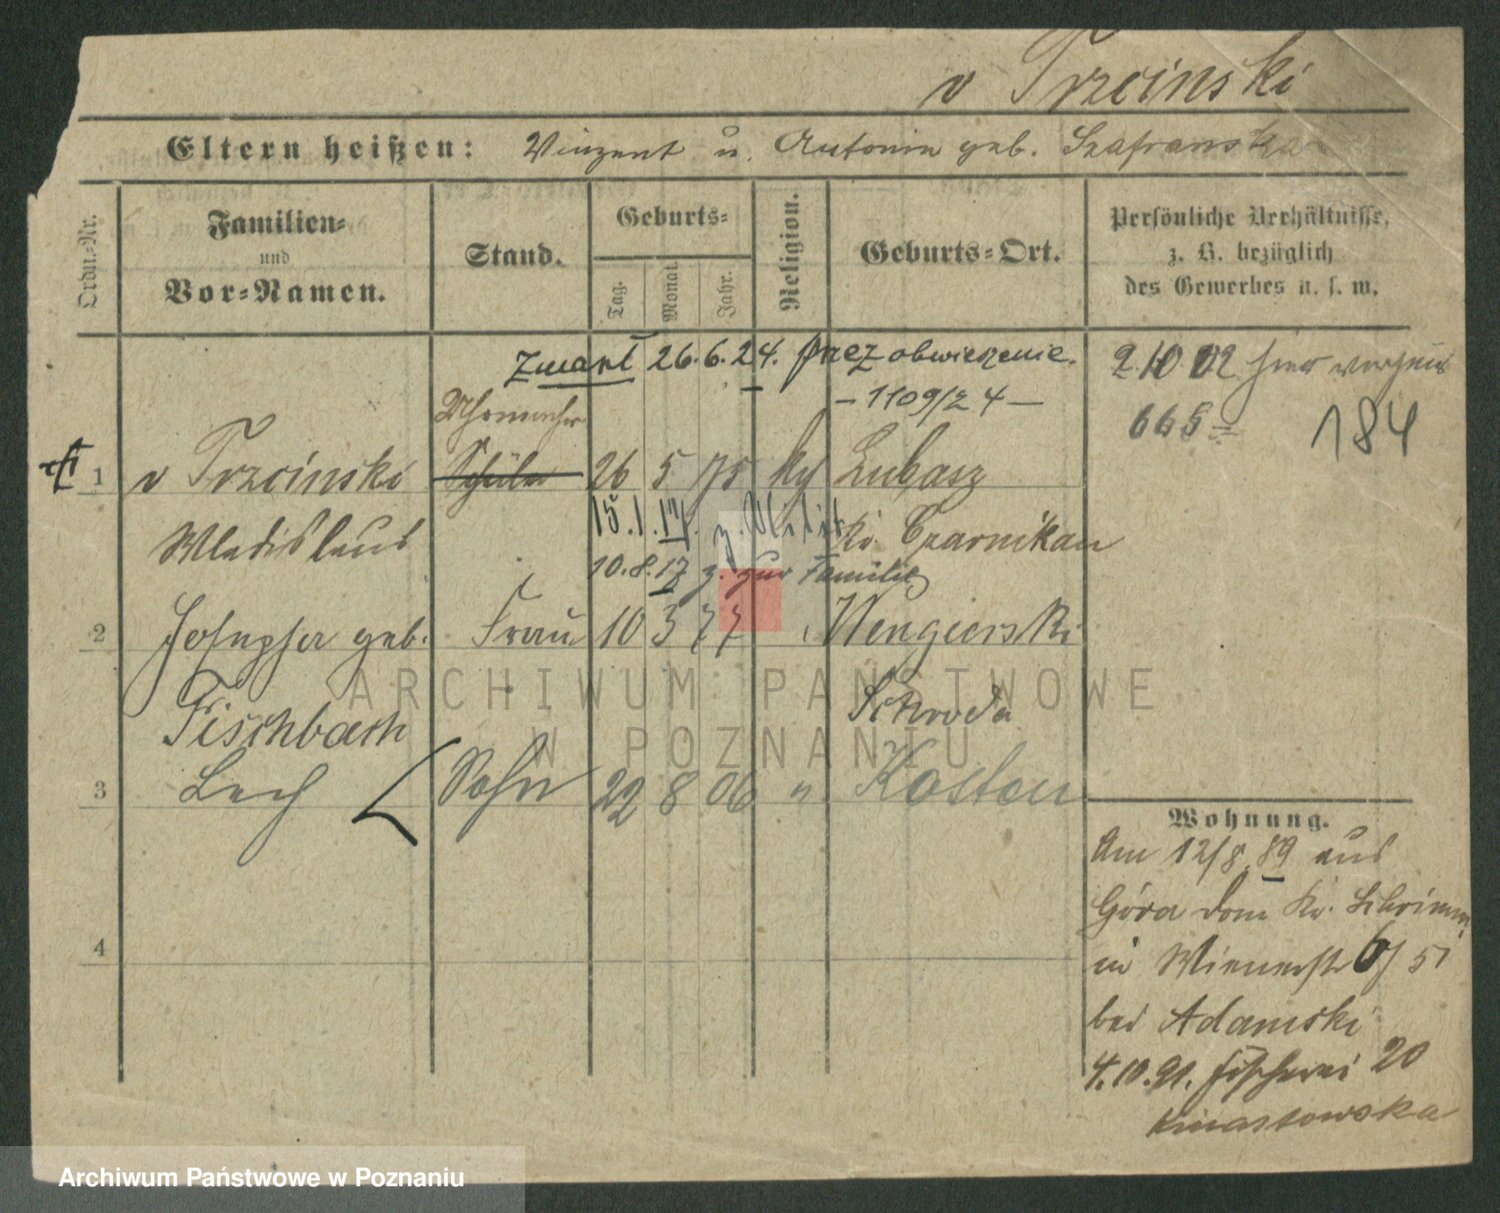 v Trzcinski
Eltern heißen: Vinzent u. Antonie geb. Szafranska
Ordn.-Nr.
Familien-
und
Vor-Namen.
Stand.
Geburts-
Tag.
Monat.
Jahr.
Religion.
Geburts-Ort.
Persönliche Verhältnisse,
z. B. bezüglich
des Gewerbes u. s. w.
Zmarł 26.6.24. prez obwieszenie.
- 1109/24 -
2.10.02 hier
665
184
Uhrmacher
1 v Trzcinski Schüler 26 5 75 ky Lubasz
Wladislaus
15.1.17. z. Militär
Kr. Czarnikau
10.8.17 z. zur Familie
2 Josepha geb. Frau 10 3 77 Wengierski
Fischbach
Schroda
3 Lech Sohn 22 8 06 Kosten
4
Wohnung.
Am 12/8 89 aus
Góra dom Kr. Schrimm,
in Wienerstr 6/51
bei Adamski
4.10.91. Fischerei 20
Kwiastowska
ARCHIWUM PAŃSTWOWE
W POZNANIU
Archiwum Państwowe w Poznaniu